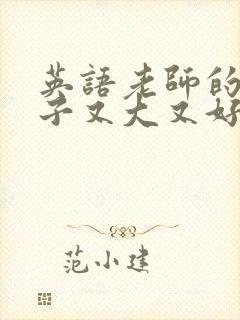 英語老師的
子又大又好
范小建